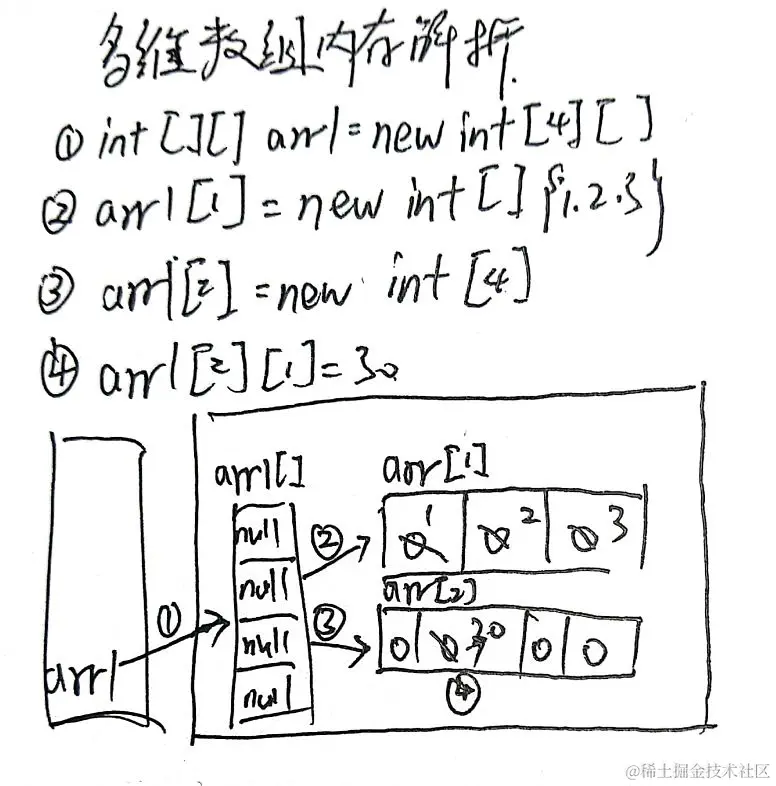 多维数组内存解析.
① int[][] arr1=new int[4][ ]
② arr1[1]=new int[]{1.2.3}
③ arr1[2]=new int[4]
④ arr1[2][1]=30
arr1[]
arr[1]
null
②
0 1
0 2
0 3
null
arr[2]
①
null
③
0
0 30
0
0
arr1
null
④
@稀土掘金技术社区